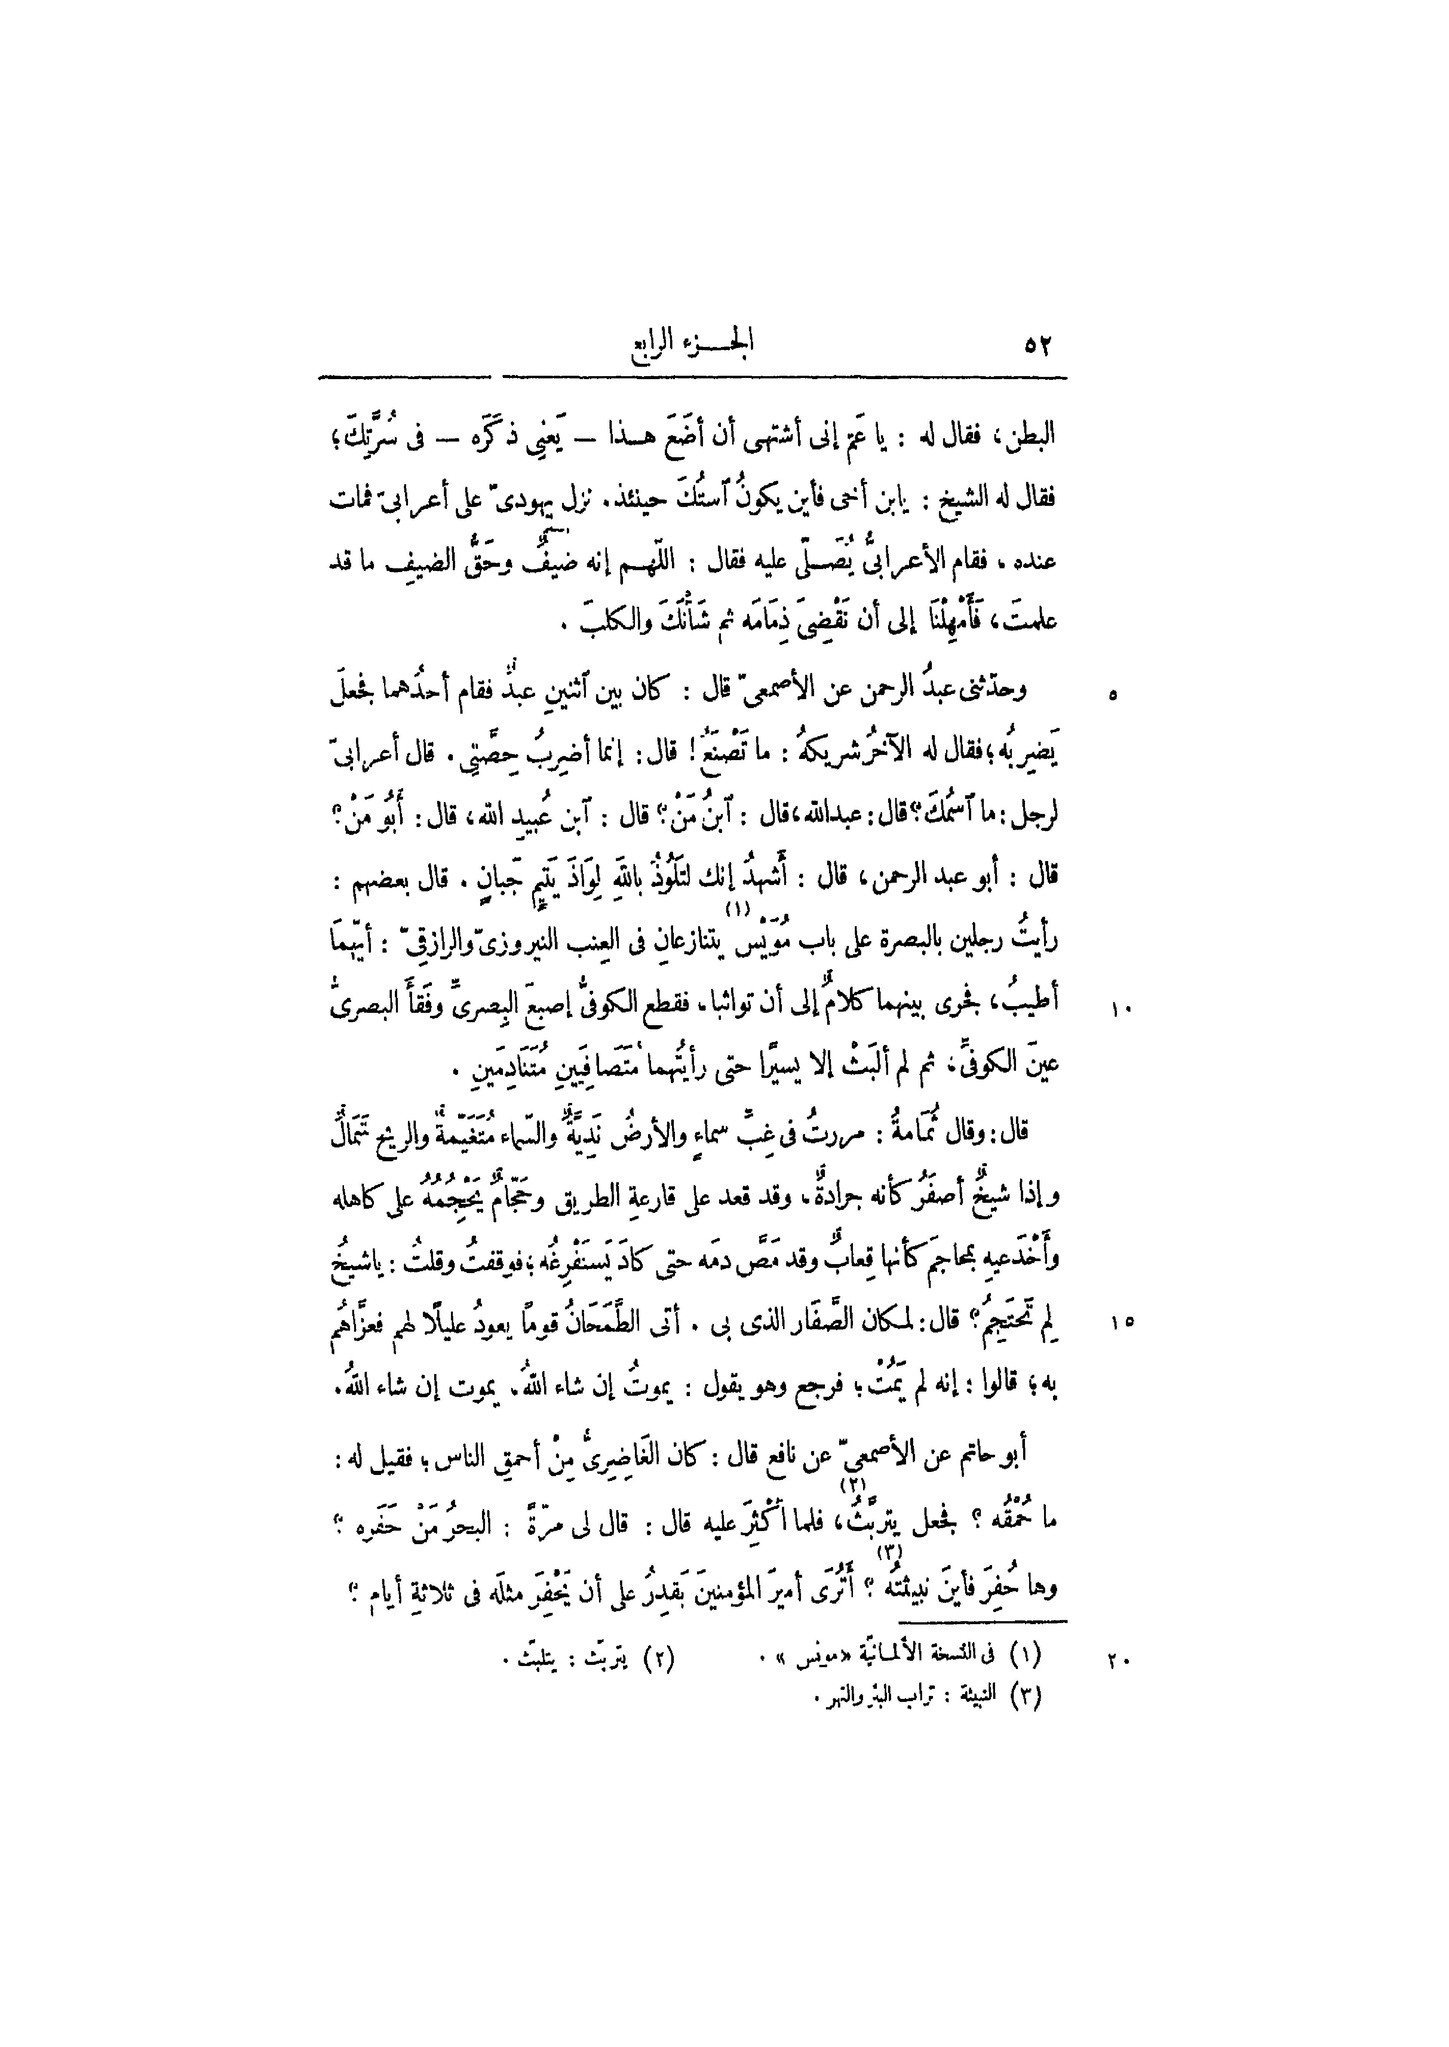 ٥٢ الجـزء الرابع
البطن، فقال له : يا عَمّ إنى أشتهى أن أضَعَ هـذا — يَعنِى ذكَرَه — فى سُرَّتِكَ؛
فقال له الشيخ : يابن أخى فأين يكونُ ٱستُكَ حينئذ. نزل يهودىّ على أعرابىّ فمات
عنده، فقام الأعرابىُّ يُصَـلّى عليه فقال : اللّهـم إنه ضيفٌ وحَقُّ الضيفِ ما قد
علمتَ، فَأَمْهِلْنَا إلى أن نَقْضِىَ ذِمَامَه ثم شَأنَكَ والكلبَ .
وحدّثنى عبدُ الرحمن عن الأصمعىّ قال : كان بين ٱثنينِ عبدٌ فقام أحدُهما فجعلَ
٥
يَضرِبُه؛ فقال له الآخرُ شريكهُ : ما تَصْنَعُ! قال: إنما أضرِبُ حِصَّتِى. قال أعرابىّ
لرجل: ما ٱسمُكَ؟ قال: عبدالله، قال : ٱبنُ مَنْ؟ قال : ٱبن عُبيدِ الله، قال: أَبُو مَنْ؟
قال : أبو عبد الرحمن، قال : أَشهدُ إنك لتَلُوذُ باللهِ لِوَاذَ يَتِيمٍ جَبانٍ . قال بعضهم :
رأيتُ رجلين بالبصرة على باب مُوَيْس (١) يتنازعانِ فى العِنب النيروزىّ والرازقىّ : أيّهمَا
أطيبُ، فجرى بينهما كلامٌ إلى أن تواثبا، فقطع الكوفىُّ إصبعَ البِصرىِّ وفَقأَ البصرىُّ
١٠
عينَ الكوفىِّ؛ ثم لم ألبَثْ إلا يسيرًا حتى رأيتُهما مُتَصَافِيَينِ مُتَنَادِمَينِ .
قال: وقال ثُمَامةُ : مررتُ فى غِبِّ سماءٍ والأرضُ نَدِيّةٌ والسّماء مُتَغَيّمةٌ والريح شَمَالٌ
وإذا شيخٌ أصفَرُ كأنه جرادةٌ، وقد قعد على قارعةِ الطريق وحَجّامٌ يَحْجُمُهُ على كاهله
وأَخْدَعيهِ بمحاجمَ كأنها قِعابٌ وقد مَصَّ دمَه حتى كادَ يَستَفْرِغُه؛ فوقفتُ وقلتُ : ياشيخُ
لِم تَحتَجِمُ؟ قال: لمكان الصَّفَار الذى بى . أتى الطَّمَحَانُ قومًا يعودُ عليلًا لهم فعزَّاهُم
١٥
به؛ قالوا : إنه لم يَمُتْ؛ فرجع وهو يقول : يموتُ إن شاء اللهُ، يموت إن شاء اللهُ.
أبو حاتم عن الأصمعىّ عن نافع قال : كان الغَاضِرِىُّ مِنْ أحمقِ الناس؛ فقيل له :
ما حُمْقُه ؟ فجعل يتربَّثُ (٢)، فلما أُكْثِرَ عليه قال : قال لى مرّةً : البحرُ مَنْ حَفَره ؟
وها حُفِرَ فأينَ نبيثتُه (٣) ؟ أَتُرَى أميرَ المؤمنينَ بَقدِرُ على أن يَحْفِرَ مثلَه فى ثلاثةِ أيام ؟
(١) فى النسخة الألمانيّة «مونس» . (٢) يتربّث : يتلبّث .
٢٠
(٣) النبيثة : تراب البئر والنهر .